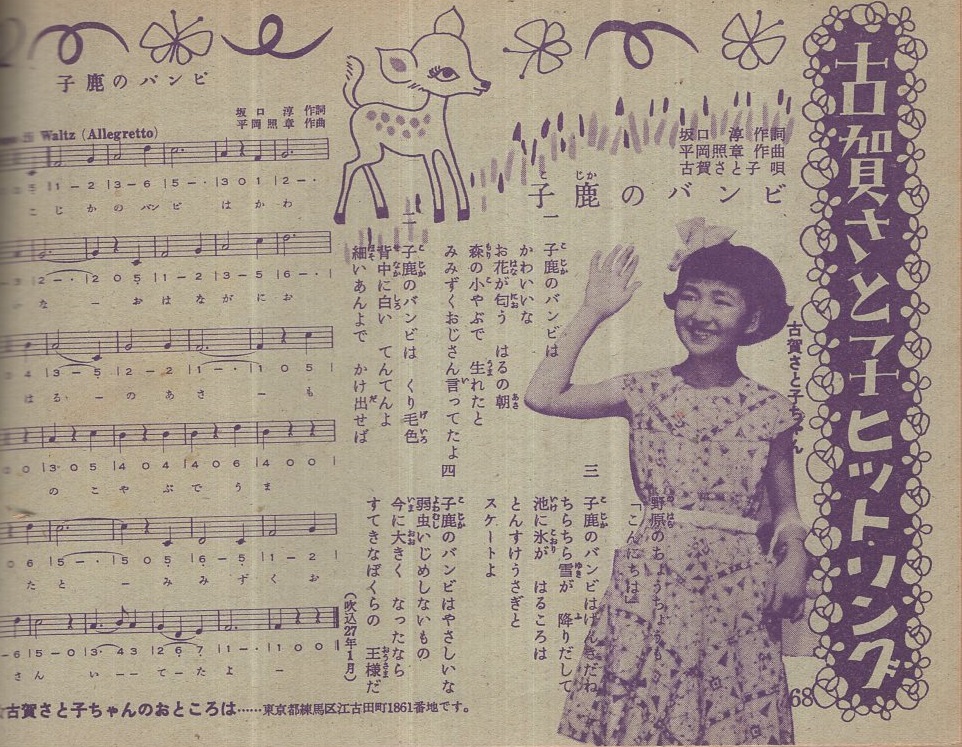 古賀さと子ヒット・ソング
古賀さと子ちゃん
坂口 淳 作詞
平岡照章 作曲
古賀さと子 唄
子鹿のバンビ
一
子鹿のバンビは
かわいいな
お花が匂う はるの朝
森の小やぶで 生れたと
みみずくおじさん言ってたよ
二
子鹿のバンビは くり毛色
背中に白い てんてんよ
細いあんよで かけ出せば
野原のちょうちょうも
「こんにちは」
三
子鹿のバンビはげんきだね
ちらちら雪が 降りだして
池に氷が はるころは
とんすけうさぎと
スケートよ
四
子鹿のバンビはやさしいな
弱虫いじめしないもの
今に大きく なったなら
すてきなぼくらの 王様だ
(吹込27年1月)
子鹿のバンビ
坂口 淳 作詞
平岡照章 作曲
Waltz (Allegretto)
5 |1 − 2 |3 − 6 |5 − · |3 0 1 |2 − ·
こ じ か の バン ビ は か わ
2 − · |2 0 5 |1 − 2 |3 − 5 |6 − · |
い な − お は な が に お
4 |3 − 5 |2 − 2 |1 − · |1 0 5 |
は る · − の あ さ − も
0 |3 · 0 5 |4 0 4 |4 0 6 |4 0 0 |
の こ や ぶ で う ま
6 |5 − · |5 0 5 |6 − 5 |1 − 2 |
た と − み み ず く お
− 6 |5 − 0 |3 · 4 3 |2 6 7 |1 − · |1 0 0 |
さ ん い − − て − た よ −
古賀さと子ちゃんのおところは……東京都練馬区江古田町1861番地です。
68